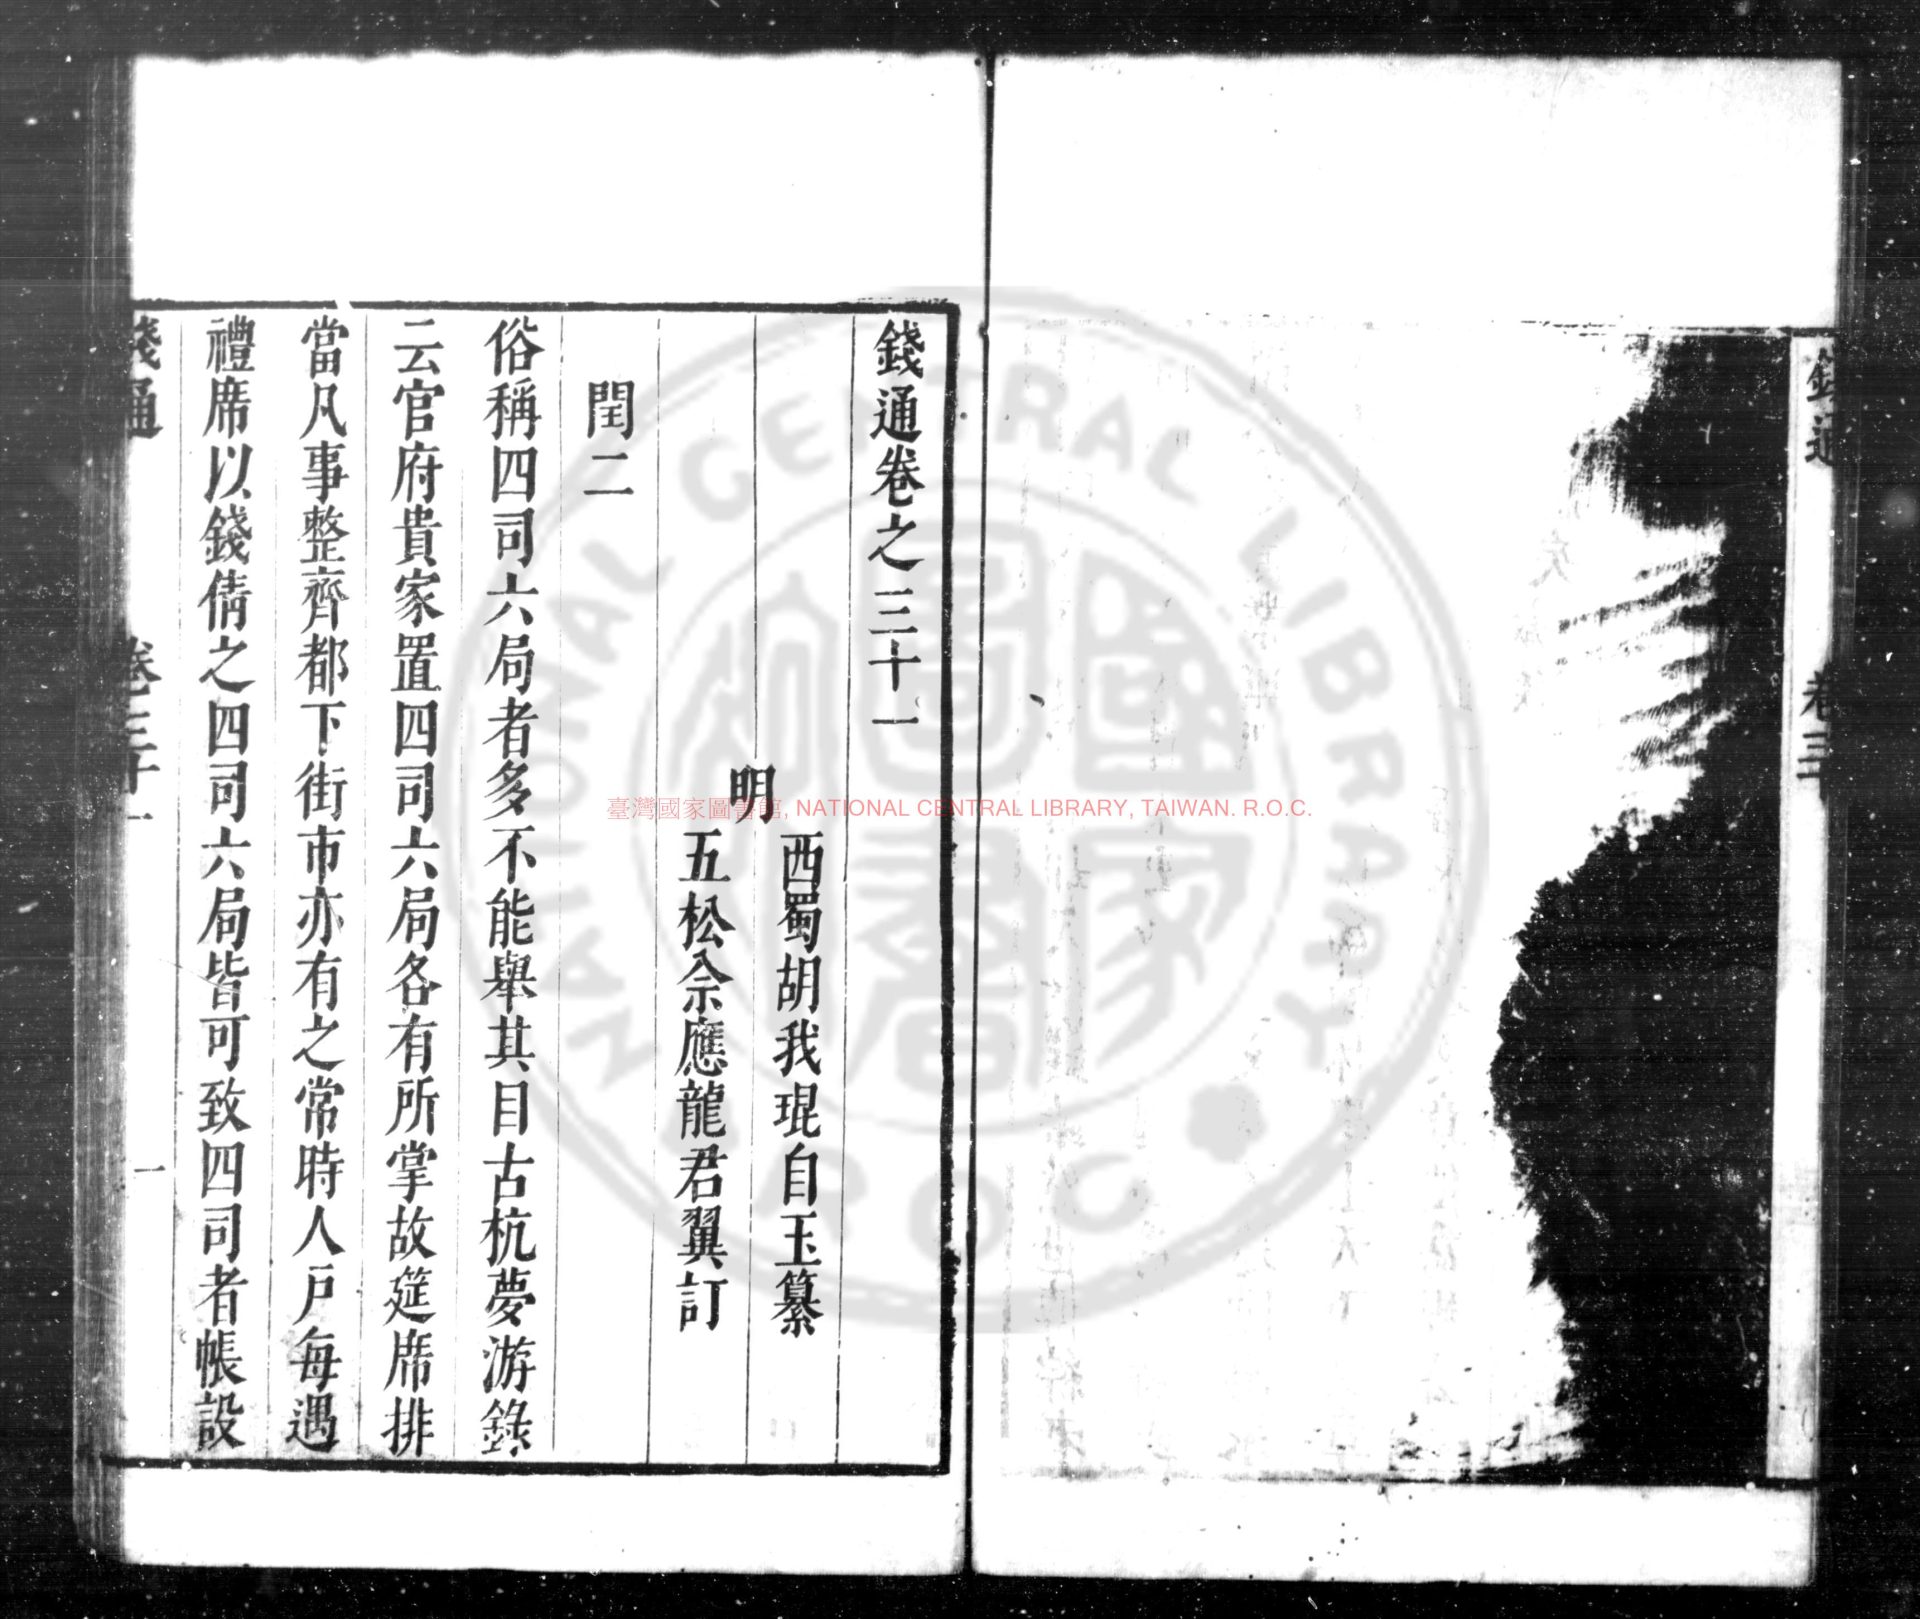 錢通卷之三十一
明
西蜀胡我琨自玉纂
五松佘應龍君翼訂
閏二
俗稱四司六局者多不能舉其目古杭夢游錄
云官府貴家置四司六局各有所掌故筵席排
當凡事整齊都下街市亦有之常時人戶每遇
禮席以錢倩之四司六局皆可致四司者帳設
錢通
卷三十一
一
錢通
卷三
臺灣國家圖書館, NATIONAL CENTRAL LIBRARY, TAIWAN. R.O.C.
NATIONAL CENTRAL LIBRARY
R.O.C.
國家圖書館